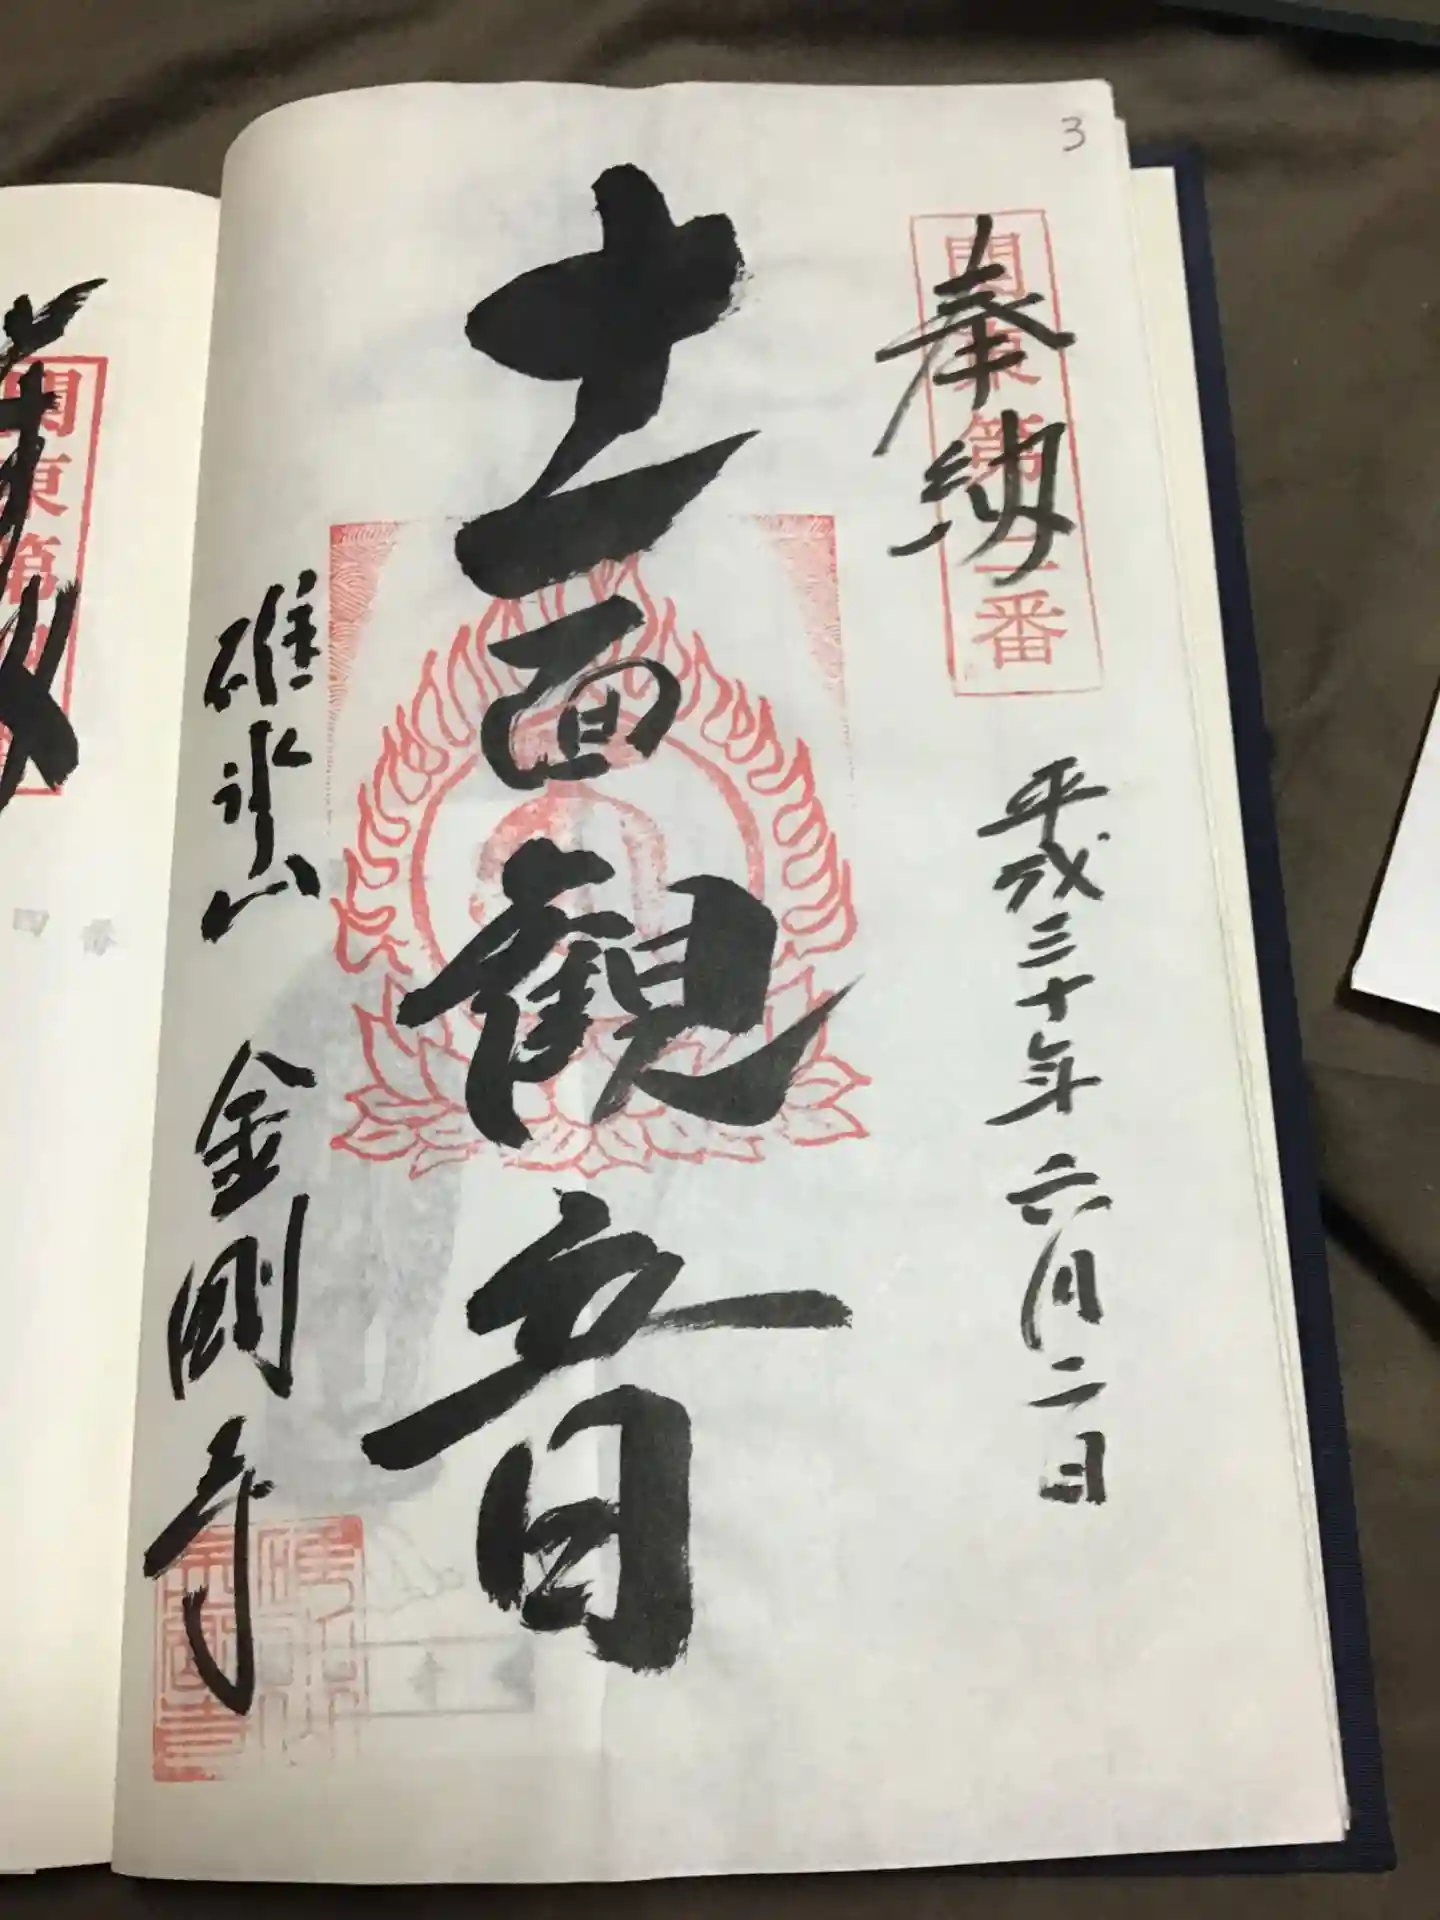 3
奉納
關東第三番
平成三十年六月二日
十一面観音
碓氷山 金剛寺
關東第
四番